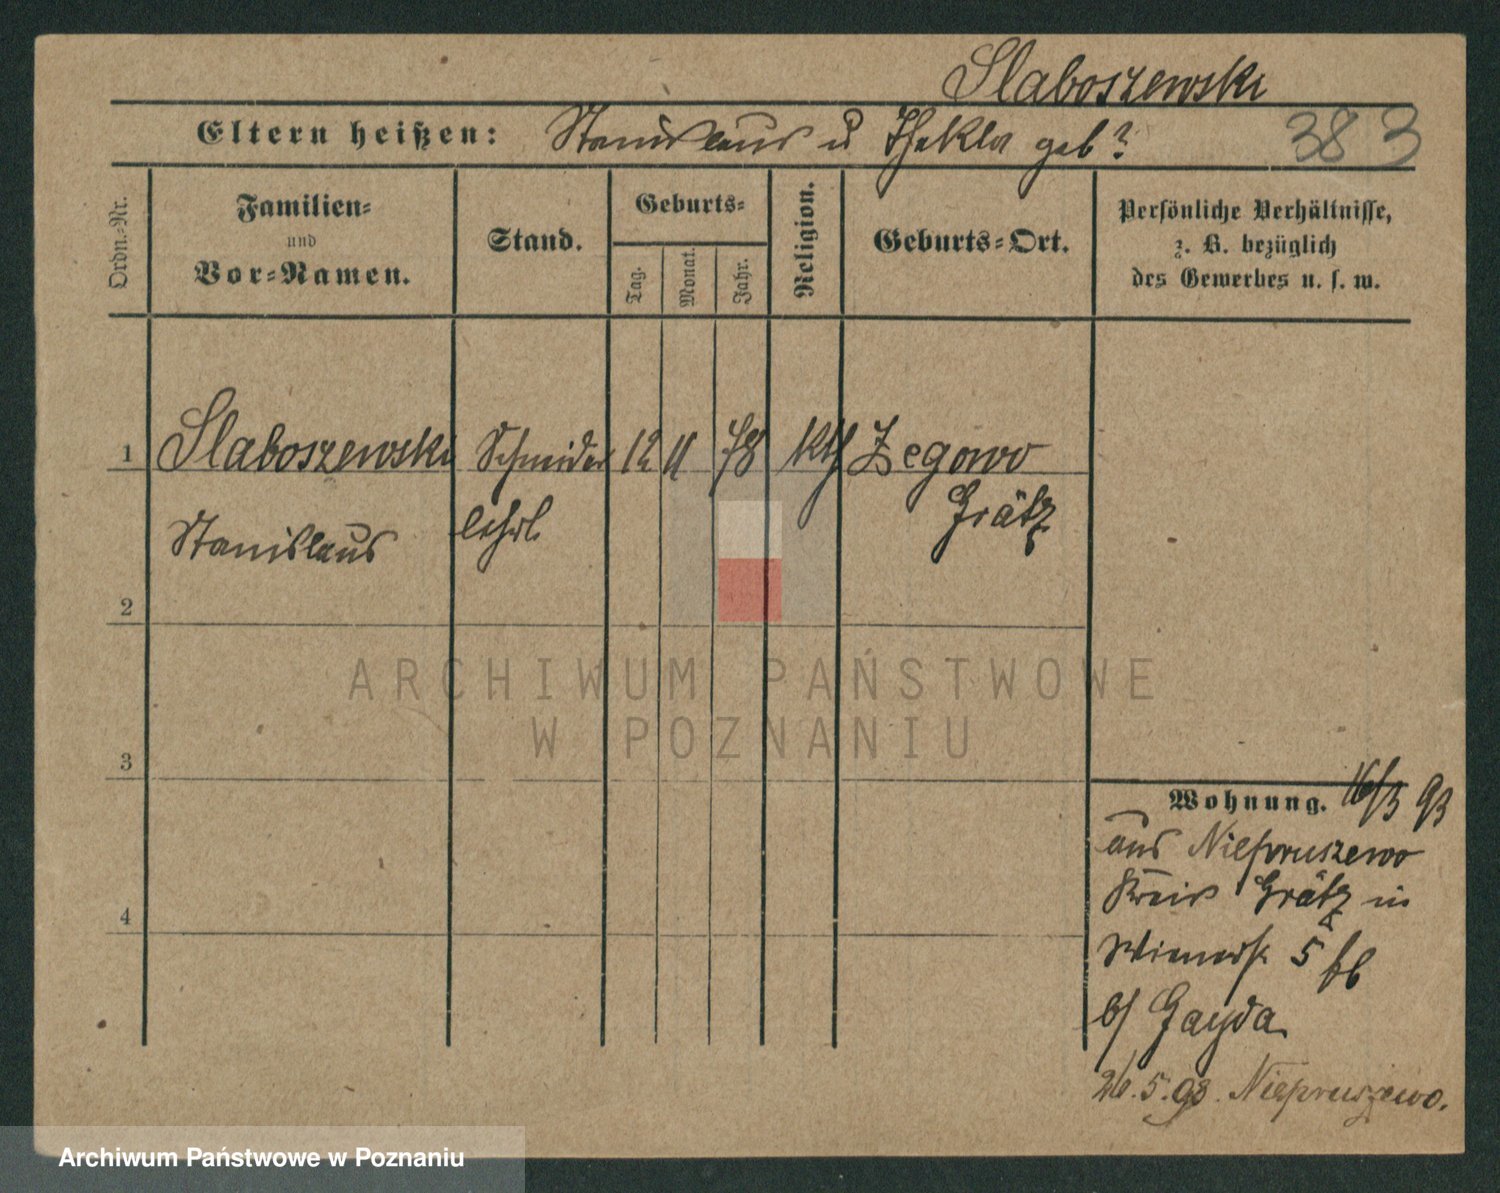 Slaboszewski
Eltern heißen: Stanislaus u Thekla geb?
383
Ordn.-Nr.
Familien-
und
Vor-Namen.
Stand.
Geburts-
Tag.
Monat.
Jahr.
Religion.
Geburts-Ort.
Persönliche Verhältnisse,
z. B. bezüglich
des Gewerbes u. s. w.
1 Slaboszewski Schneider 12 11 78 kth Zegowo
Stanislaus lehrl Grätz
2
3
4
ARCHIWUM PAŃSTWOWE
W POZNANIU
Wohnung. 16/3 93
aus Niepruszewo
Kreis Grätz in
Wienerstr 5
b/ Gayda
26.5.93. Niepruszewo.
Archiwum Państwowe w Poznaniu